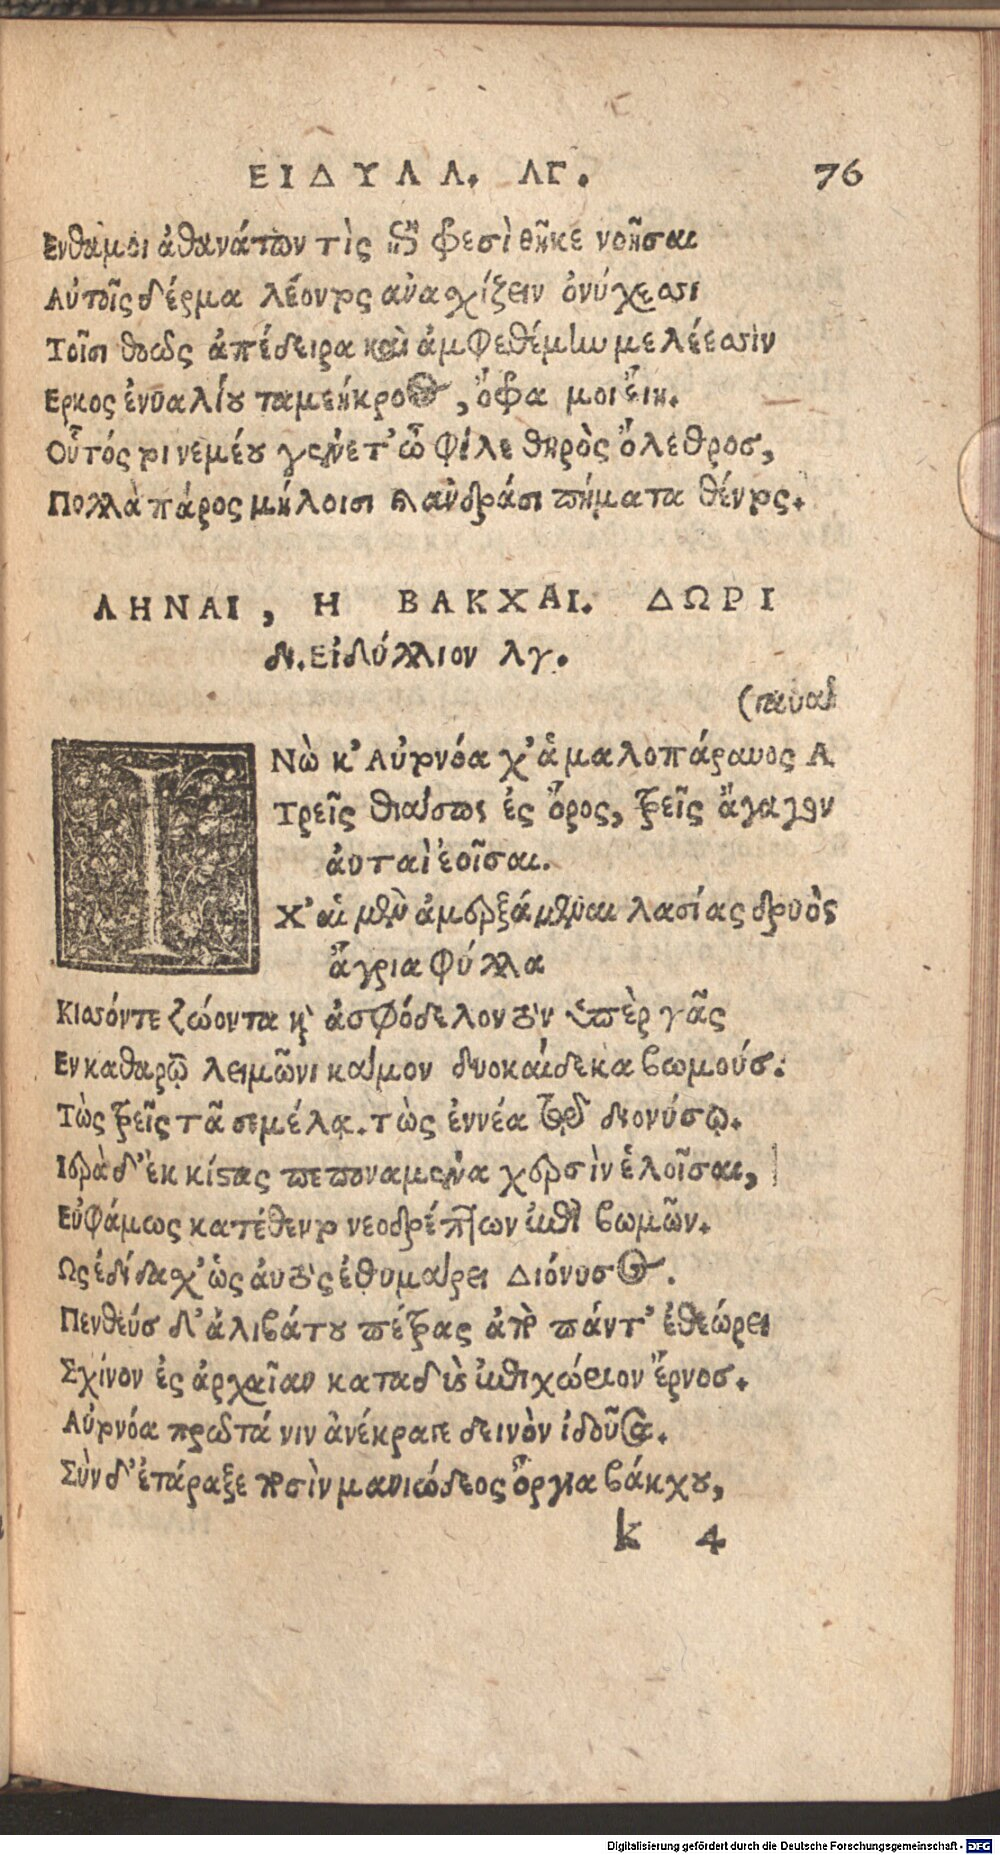 ΕΙΔΥΛΛ. ΛΓ. 76
Ενθα μοι ἀθανάτων τὶς ἐπὶ φρεσὶ θῆκε νοῆσαι
Αὐτοῖς δέρμα λέοντος ἀνασχίζειν ὀνύχεσσι
Τοῖσι θοῶς ἀπέδειρα καὶ ἀμφεθέμην μελέεσσιν
Ερκος ἐνυαλίου ταμεσίχροος, ὄφρα μοι εἴη.
Οὗτός τοι νεμέου γένετ' ὦ φίλε θηρὸς ὄλεθρος,
Πολλὰ πάρος μήλοισι καὶ ἀνδράσι πήματα θέντος.
ΛΗΝΑΙ, Η ΒΑΚΧΑΙ. ΔΩΡΙ
δι. Εἰδύλλιον λγ.
(παύα
ΙΝὼ κ' Αὐτονόα χ' ἁ μαλοπάραυος Α
Τρεῖς θιάσως ἐς ὄρος, τρεῖς ἄγαγον
ἀυταὶ ἐοῖσαι.
Χ' αἱ μὲν ἀμερξάμεναι λασίας δρυὸς
ἄγρια φύλλα
Κισσόν τε ζώοντα καὶ ἀσφόδελον τὸν ὑπὲρ γᾶς
Εν καθαρῷ λειμῶνι κάμον δυοκαίδεκα βωμούς:
Τὼς τρεῖς τᾷ σεμέλᾳ. τὼς ἐννέα τῷ διονύσῳ.
Ιερὰ δ' ἐκ κίστας πεποναμένα χερσὶν ἑλοῖσαι,
Εὐφάμως κατέθεντο νεοδρέπτων ἐπὶ βωμῶν.
Ως ἐδίδαχ' ὡς ἀυτὸς ἐθυμάρει Διόνυσος.
Πενθεύς δ' ἀλιβάτου πέτρας ἄπο πάντ' ἐθεώρει
Σχίνον ἐς ἀρχαῖαν καταδὺς ἐπιχώριον ἔρνος.
Αὐτονόα πρωτά νιν ἀνέκραγε δεινὸν ἰδοῦσα.
Σὺν δ' ἐτάραξε ποσὶν μανιώδεος ὄργια βάκχου,
k 4
Digitalisierung gefördert durch die Deutsche Forschungsgemeinschaft - DFG